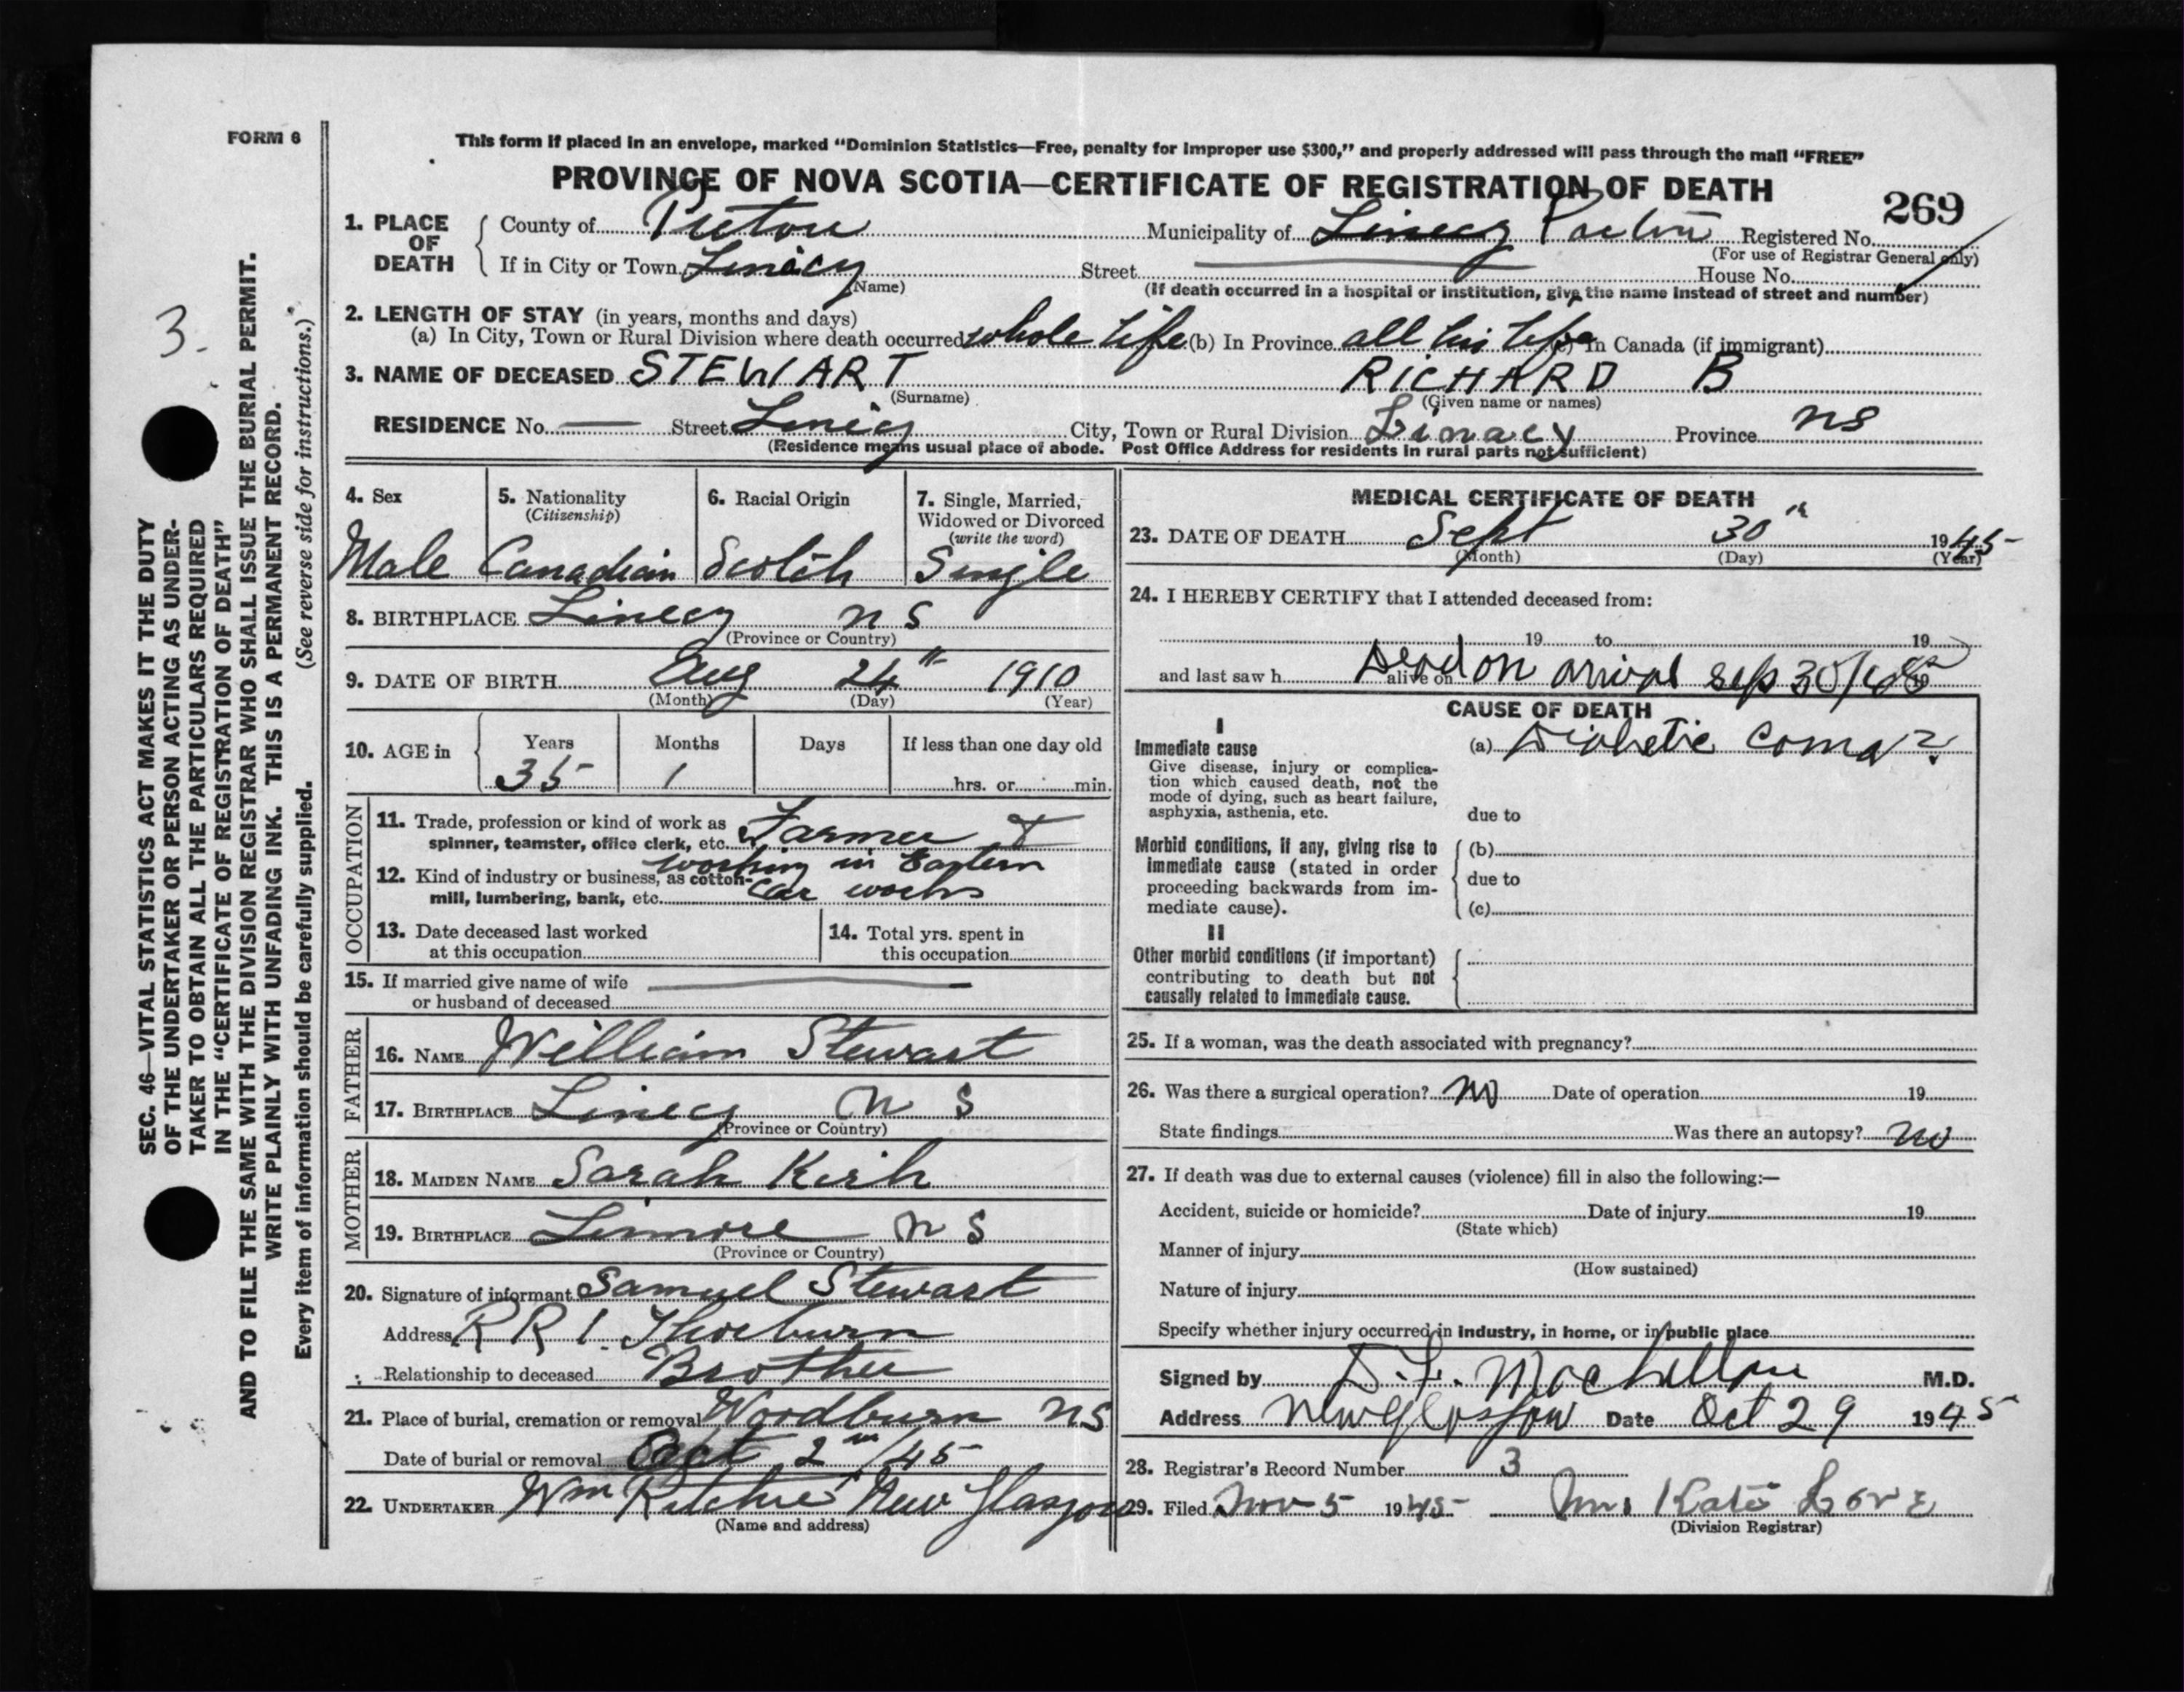 FORM 6
This form if placed in an envelope, marked "Dominion Statistics—Free, penalty for improper use $300," and properly addressed will pass through the mail "FREE"
PROVINCE OF NOVA SCOTIA—CERTIFICATE OF REGISTRATION OF DEATH
269
1. PLACE OF DEATH
County of Pictou Municipality of Linecy Pictou Registered No.
(For use of Registrar General only)
If in City or Town Linacy Street House No.
(Name) (If death occurred in a hospital or institution, give the name instead of street and number)
2. LENGTH OF STAY (in years, months and days)
(a) In City, Town or Rural Division where death occurred whole life (b) In Province all his life (c) In Canada (if immigrant)
3. NAME OF DECEASED STEWART RICHARD B
(Surname) (Given name or names)
RESIDENCE No. — Street Linecy City, Town or Rural Division Linacy Province NS
(Residence means usual place of abode. Post Office Address for residents in rural parts not sufficient)
4. Sex
Male
5. Nationality
(Citizenship)
Canadian
6. Racial Origin
Scotch
7. Single, Married,
Widowed or Divorced
(write the word)
Single
8. BIRTHPLACE Linecy N S
(Province or Country)
9. DATE OF BIRTH Aug 24th 1910
(Month) (Day) (Year)
10. AGE in
Years Months Days If less than one day old
35 1 hrs. or min.
OCCUPATION
11. Trade, profession or kind of work as
spinner, teamster, office clerk, etc. Farmer &
12. Kind of industry or business, as cotton-
mill, lumbering, bank, etc.
working in Eastern
Car works
13. Date deceased last worked
at this occupation
14. Total yrs. spent in
this occupation
15. If married give name of wife
or husband of deceased
FATHER
16. NAME William Stewart
17. BIRTHPLACE Linecy N S
(Province or Country)
MOTHER
18. MAIDEN NAME Sarah Kirk
19. BIRTHPLACE Lismore N S
(Province or Country)
20. Signature of informant Samuel Stewart
Address R R 1. Thorburn
Relationship to deceased Brother
21. Place of burial, cremation or removal Woodburn NS
Date of burial or removal Oct 2nd/45
22. UNDERTAKER Wm Ritchie New Glasgow
(Name and address)
MEDICAL CERTIFICATE OF DEATH
23. DATE OF DEATH Sept 30th 1945
(Month) (Day) (Year)
24. I HEREBY CERTIFY that I attended deceased from:
19 to 19
and last saw h alive on 19
Dead on arrival Sep 30/45
CAUSE OF DEATH
I
Immediate cause
Give disease, injury or complica-
tion which caused death, not the
mode of dying, such as heart failure,
asphyxia, asthenia, etc.
(a) Diabetic coma?
due to
Morbid conditions, if any, giving rise to
immediate cause (stated in order
proceeding backwards from im-
mediate cause).
(b)
due to
(c)
II
Other morbid conditions (if important)
contributing to death but not
causally related to immediate cause.
25. If a woman, was the death associated with pregnancy?
26. Was there a surgical operation? No Date of operation 19
State findings Was there an autopsy? No
27. If death was due to external causes (violence) fill in also the following:—
Accident, suicide or homicide? Date of injury 19
(State which)
Manner of injury
(How sustained)
Nature of injury
Specify whether injury occurred in industry, in home, or in public place
Signed by D. F. MacLellan M.D.
Address New Glasgow Date Oct 29 1945
28. Registrar's Record Number 3
29. Filed Nov 5 1945 Mrs Kate Love
(Division Registrar)
3.
SEC. 46—VITAL STATISTICS ACT MAKES IT THE DUTY
OF THE UNDERTAKER OR PERSON ACTING AS UNDER-
TAKER TO OBTAIN ALL THE PARTICULARS REQUIRED
IN THE "CERTIFICATE OF REGISTRATION OF DEATH"
AND TO FILE THE SAME WITH THE DIVISION REGISTRAR WHO SHALL ISSUE THE BURIAL PERMIT.
WRITE PLAINLY WITH UNFADING INK. THIS IS A PERMANENT RECORD.
Every item of information should be carefully supplied. (See reverse side for instructions.)